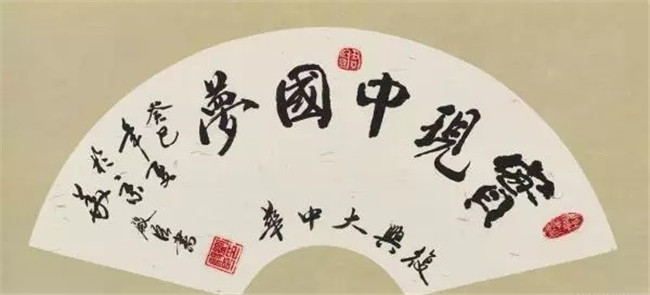 實現中國夢
復興大中華
癸巳
年夏
於京
書